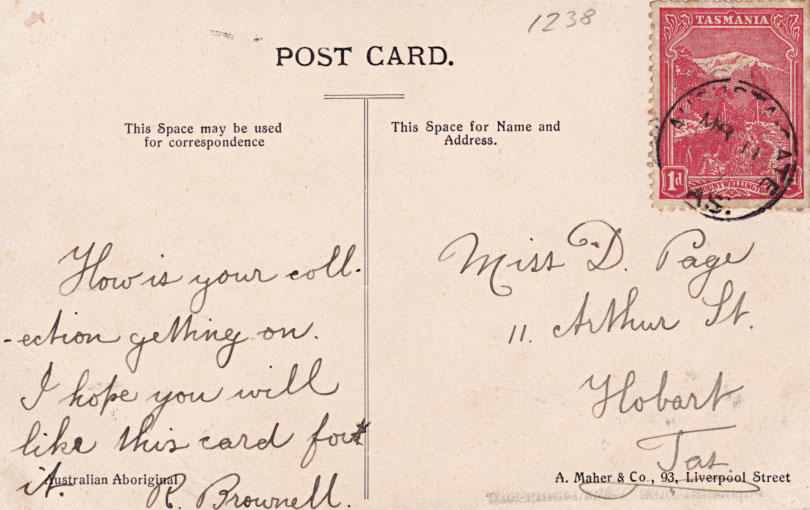 1238
POST CARD.
TASMANIA
1d
MOUNT WELLINGTON
MR 11
AS.
This Space may be used
for correspondence
This Space for Name and
Address.
How is your coll-
-ection getting on.
I hope you will
like this card for
it.
R. Brownell.
Miss D. Page
11. Arthur St.
Hobart
Tas
Australian Aboriginal
A. Maher & Co., 93, Liverpool Street